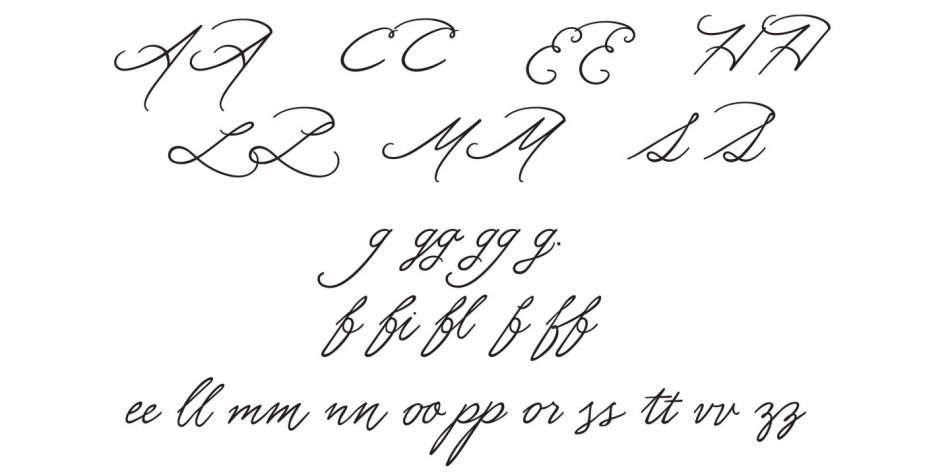 A A C C E E H H
L L M M S S
g gg gg g.
f fi fl f ff
ee ll mm nn oo pp or ss tt vv zz